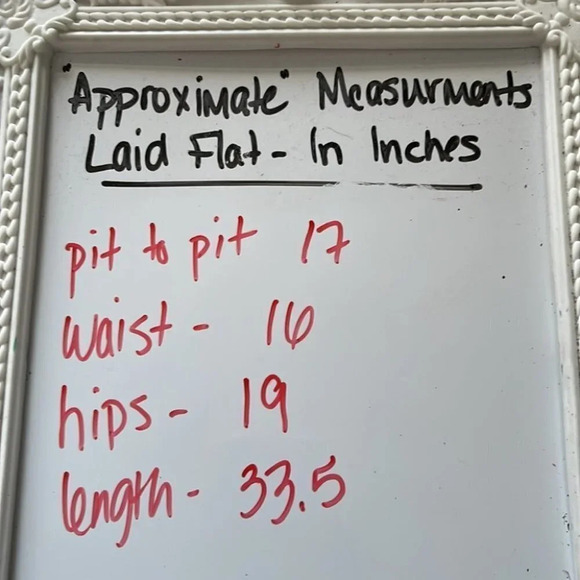 "Approximate" Measurments
Laid Flat - In Inches
pit to pit 17
waist - 16
hips - 19
length - 33.5